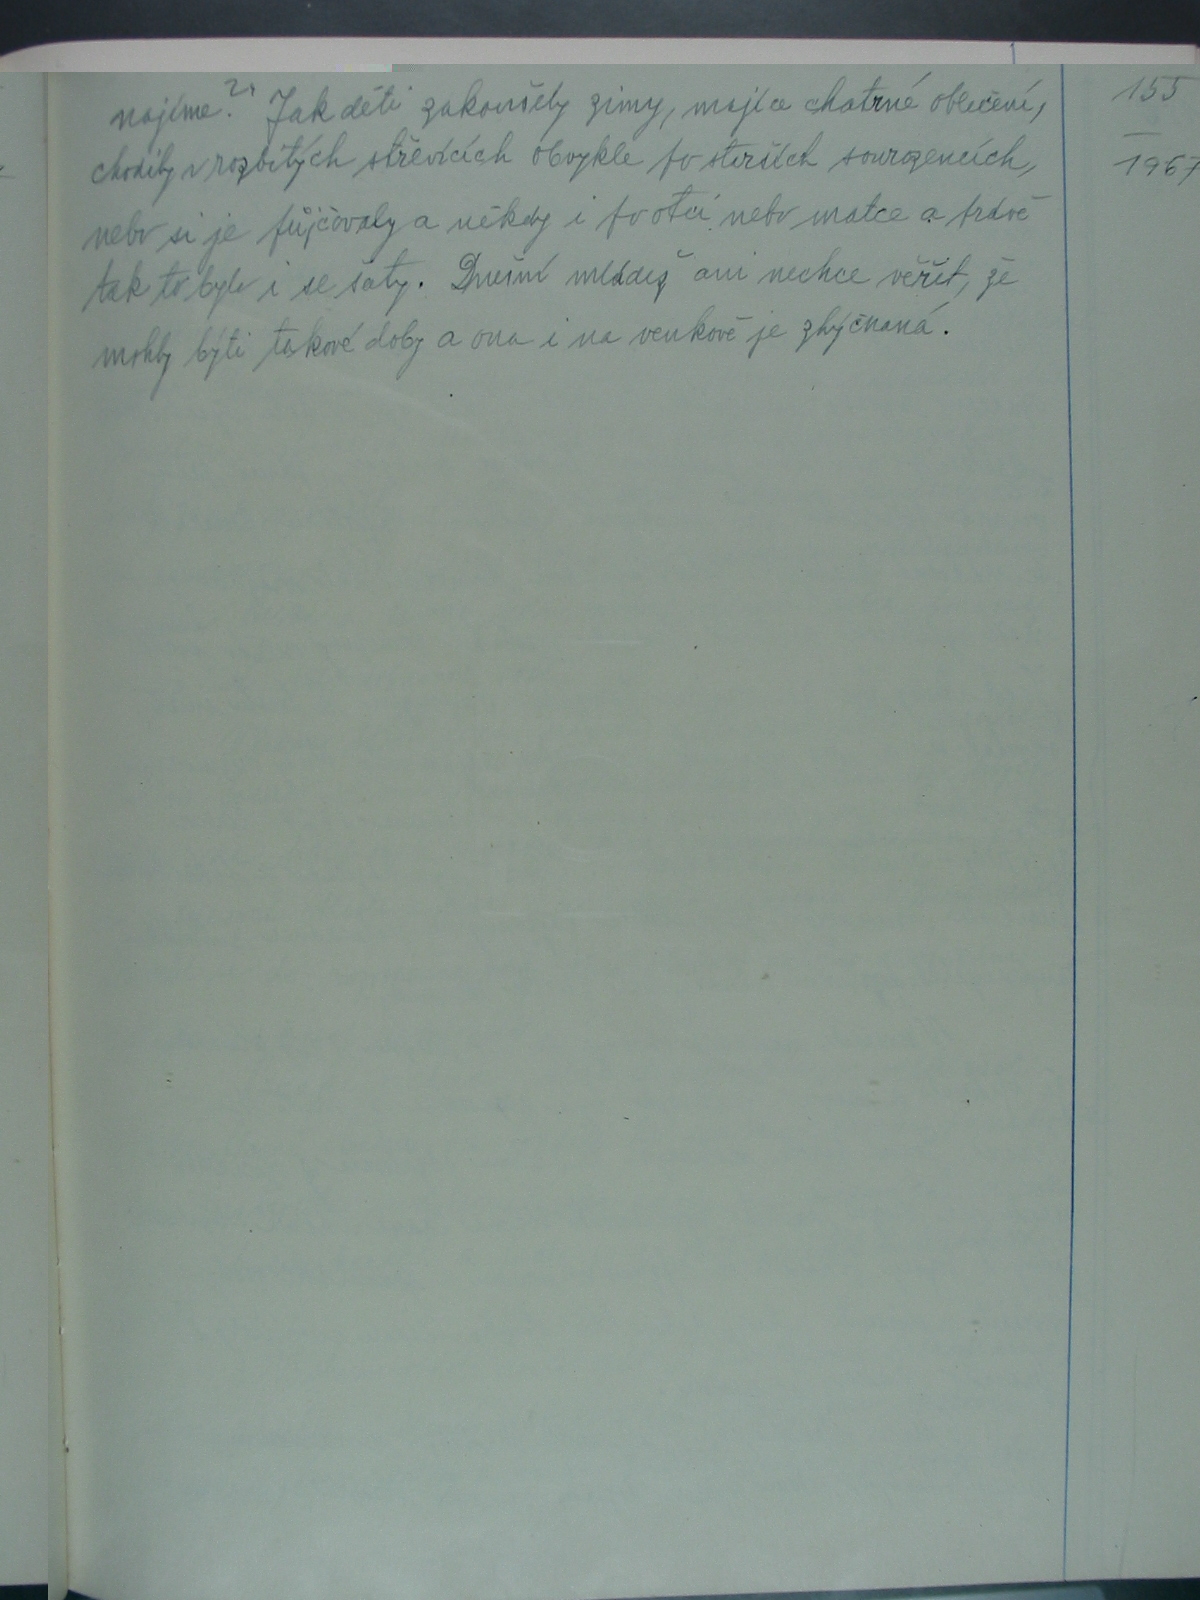 najíme?" Jak děti zakoušely zimy, majíce chatrné oblečení,
chodily v rozbitých střevících obvykle po starších sourozencích,
nebo si je půjčovaly a někdy i po otci nebo matce a právě
tak to bylo i se šaty. Dnešní mládež ani nechce věřit, že
mohly býti takové doby a ona i na venkově je zhýčkaná.
155
1967